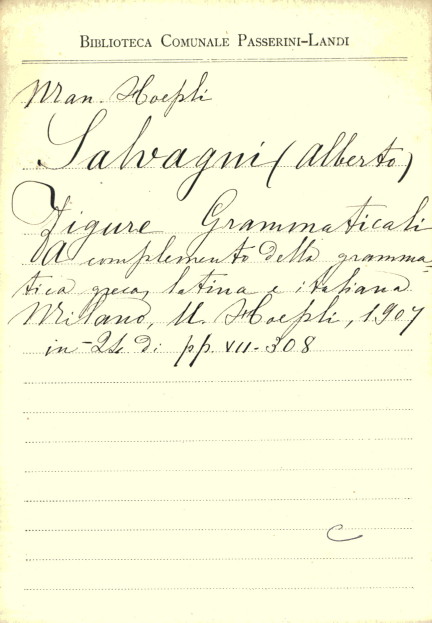 BIBLIOTECA COMUNALE PASSERINI-LANDI
Man. Hoepli
Salvagni (Alberto)
Figure Grammaticali
A complemento della gramma-
tica greca, latina e italiana
Milano, U. Hoepli, 1907
in-24 di pp. VII-308
C